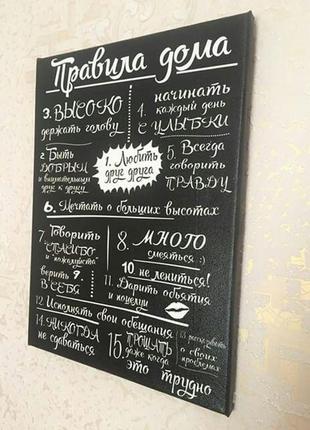 Правила дома
3. ВЫСОКО
держать голову
4. начинать
каждый день
с УЛЫБКИ
2. Быть
ДОБРЫМ
и внимательным
друг к другу
1. Любить
друг друга
5. Всегда
говорить
ПРАВДУ
6. Мечтать о больших высотах
7. Говорить
"СПАСИБО"
и "пожалуйста"
8. МНОГО
смеяться :)
верить 9.
В СЕБЯ
10 не лениться!
11. Дарить объятия
и поцелуи
12. Исполнять свои обещания
14. НИКОГДА
не сдаваться
15. ПРОЩАТЬ
даже когда
это трудно
13. рассказывать
о своих
проблемах